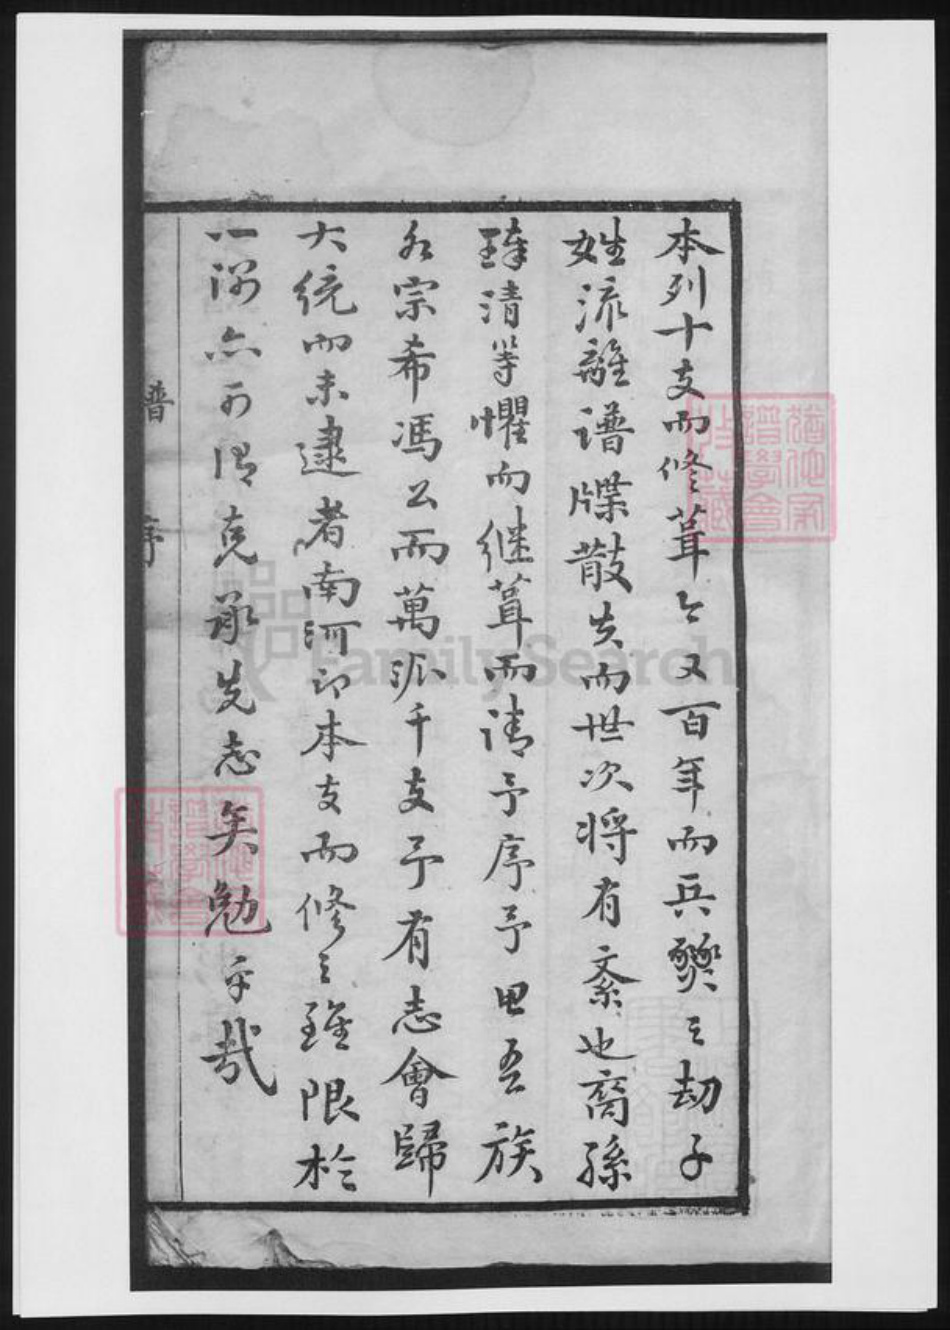 本列十支而修葺今又百年而兵燹之劫子
姓流離譜牒散失而世次將有紊也裔孫
臻清等懼而继葺而請予序予思吾族
各宗希馮公而萬派千支予有志會歸
大統而未逮者南河即本支而修之雖限於
一派亦可謂克承先志矣勉乎哉
譜 序
猶他家譜學會收藏
FamilySearch